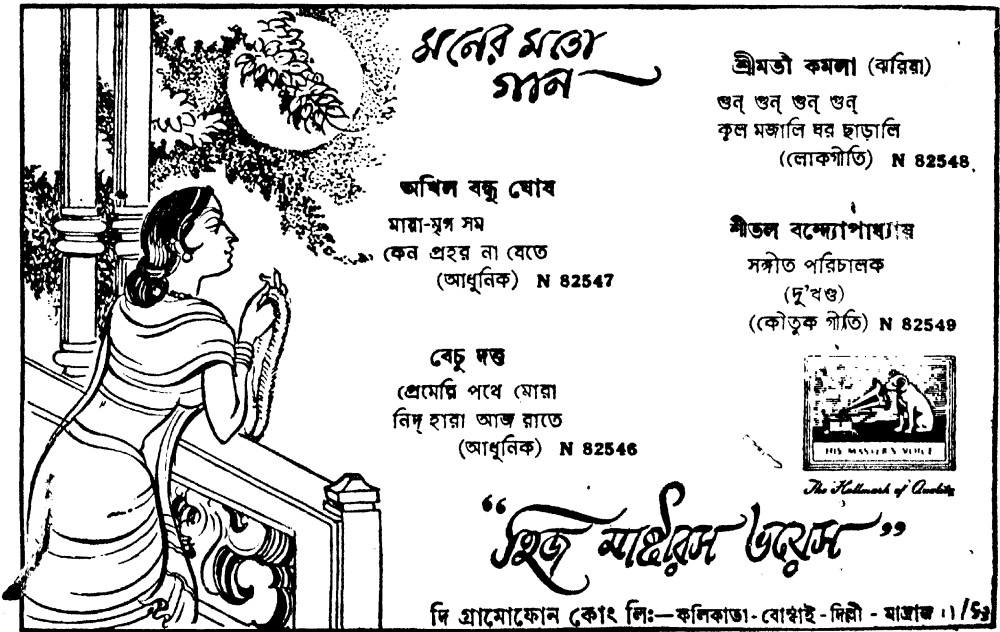 মনের মতো
গান
অখিল বন্ধু ঘোষ
মায়া-মৃগ সম
কেন প্রহর না যেতে
(আধুনিক) N 82547
বেচু দত্ত
প্রেমেরি পথে মোরা
নিদ্ হারা আজ রাতে
(আধুনিক) N 82546
শ্রীমতী কমলা (ঝরিয়া)
গুন্ গুন্ গুন্ গুন্
কূল মজালি ঘর ছাড়ালি
(লোকগীতি) N 82548.
শীতল বন্দ্যোপাধ্যায়
সঙ্গীত পরিচালক
(দু'খণ্ড)
(কৌতুক গীতি) N 82549
HIS MASTER'S VOICE
The Hallmark of Quality
"হিজ মাষ্টারস ভয়েস"
দি গ্রামোফোন কোং লিঃ—কলিকাতা-বোম্বাই-দিল্লী - মাদ্রাজ